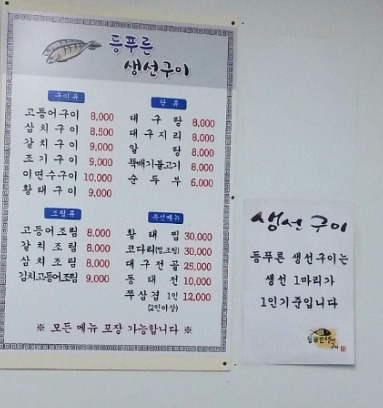 등푸른
생선구이
구이류
고등어구이 8,000
삼치구이 8.500
갈치구이 9,000
조기구이 9,000
이면수구이 10,000
황태구이 9,000
탕류
대구탕 8,000
대구지리 8,000
알탕 8,000
뚝배기불고기 8,000
순두부 6,000
조림류
고등어조림 8,000
갈치조림 8,000
삼치조림 8,000
김치고등어조림 9,000
특선메뉴
황태찜 30,000
코다리(찜,조림) 30,000
대구전골 25,000
동태전 10,000
쭈삼겹 1인 12,000
(2인이상)
※ 모든 메뉴 포장 가능합니다 ※
생선구이
등푸른 생선구이는
생선 1마리가
1인기준입니다